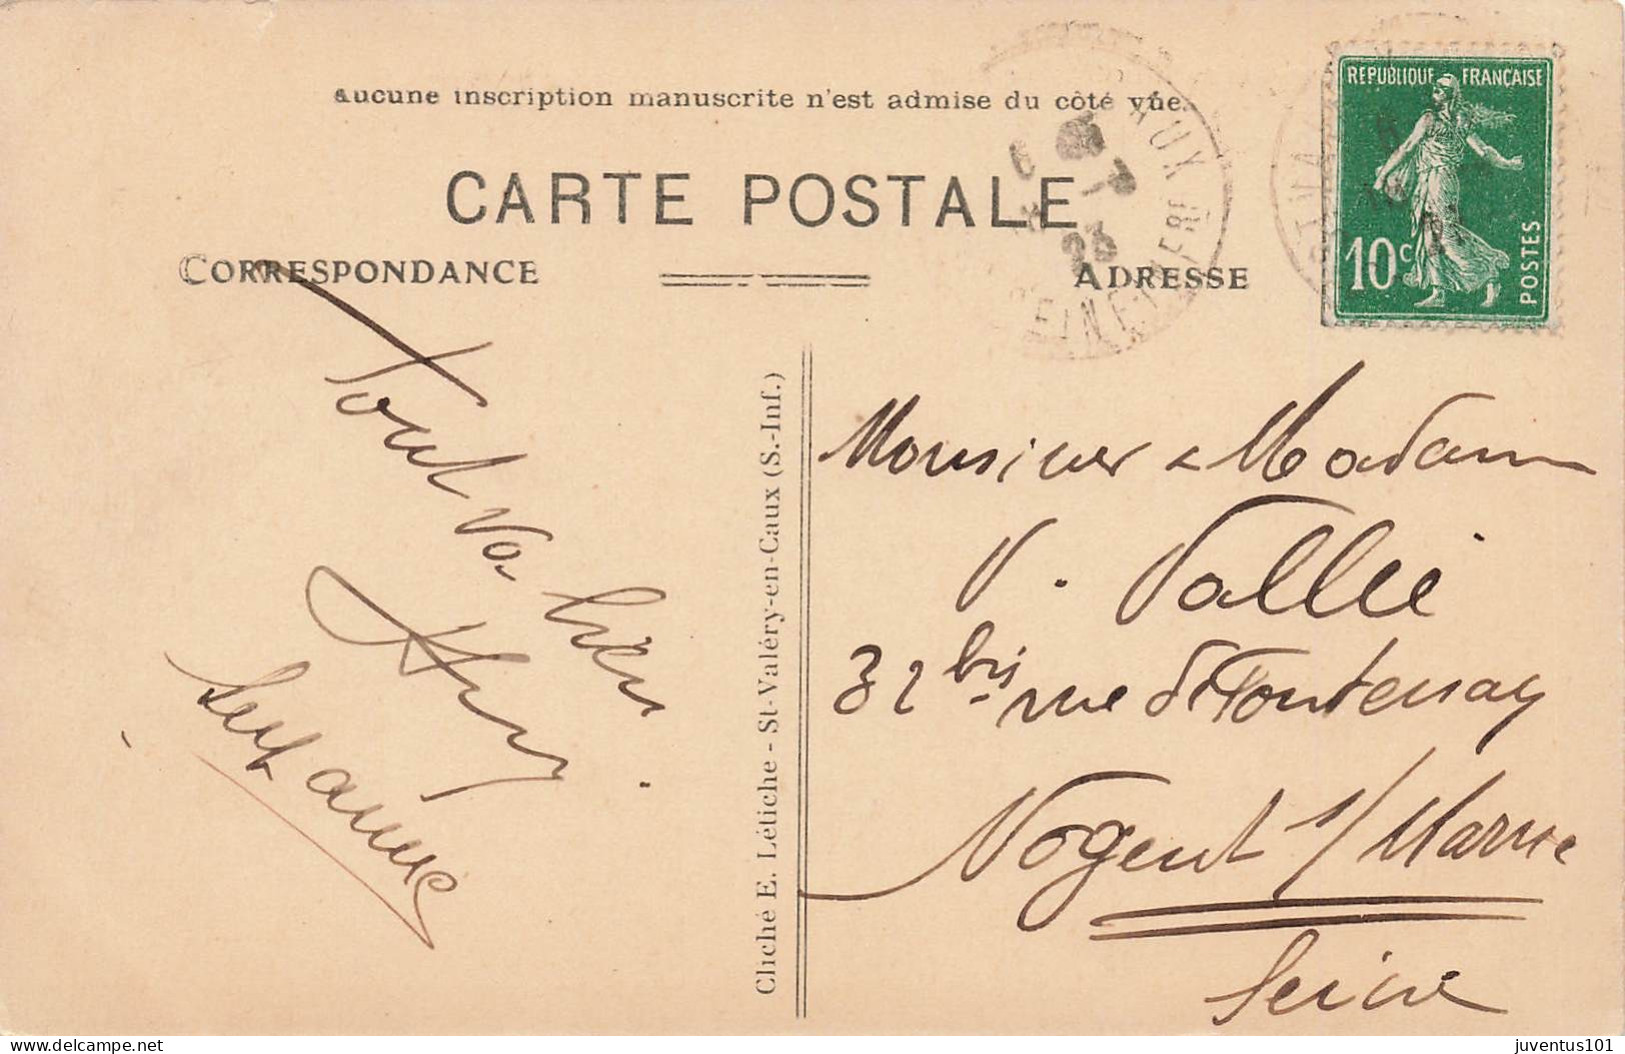 aucune inscription manuscrite n'est admise du côté vue.
CARTE POSTALE
CORRESPONDANCE
ADRESSE
REPUBLIQUE FRANÇAISE
10c
POSTES
AUX
23
SEINE INFRE
Tout va bien
Cliché E. Létiche - St-Valéry-en-Caux (S.-Inf.)
Monsieur & Madam
V. Vallée
32 bis rue de Fontenay
Nogent s/ Marne
Seine
juventus101